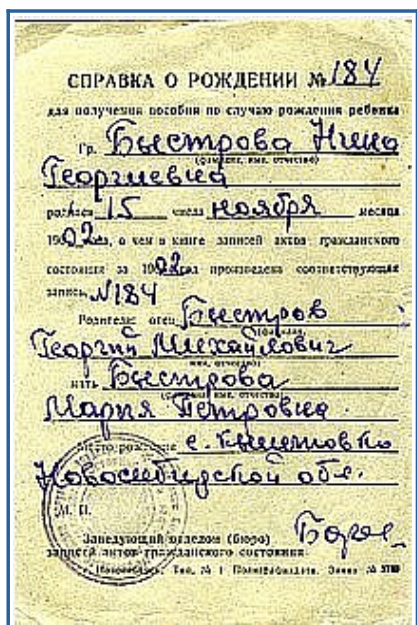 СПРАВКА О РОЖДЕНИИ № 184
для получения пособия по случаю рождения ребенка
Гр. Быстрова Нина
(фамилия, имя, отчество)
Георгиевна
родился 15 числа ноября месяца
1902 года, о чем в книге записей актов гражданского
состояния за 1902 год произведена соответствующая
запись №184
Родители: отец Быстров
Георгий Михайлович
имя, отчество)
мать Быстрова
(фамилия, имя, отчество)
Мария Петровна
Место рождения с.
Новосибирской обл.
М. П.
Заведующий отделом (бюро)
записей актов гражданского состояния